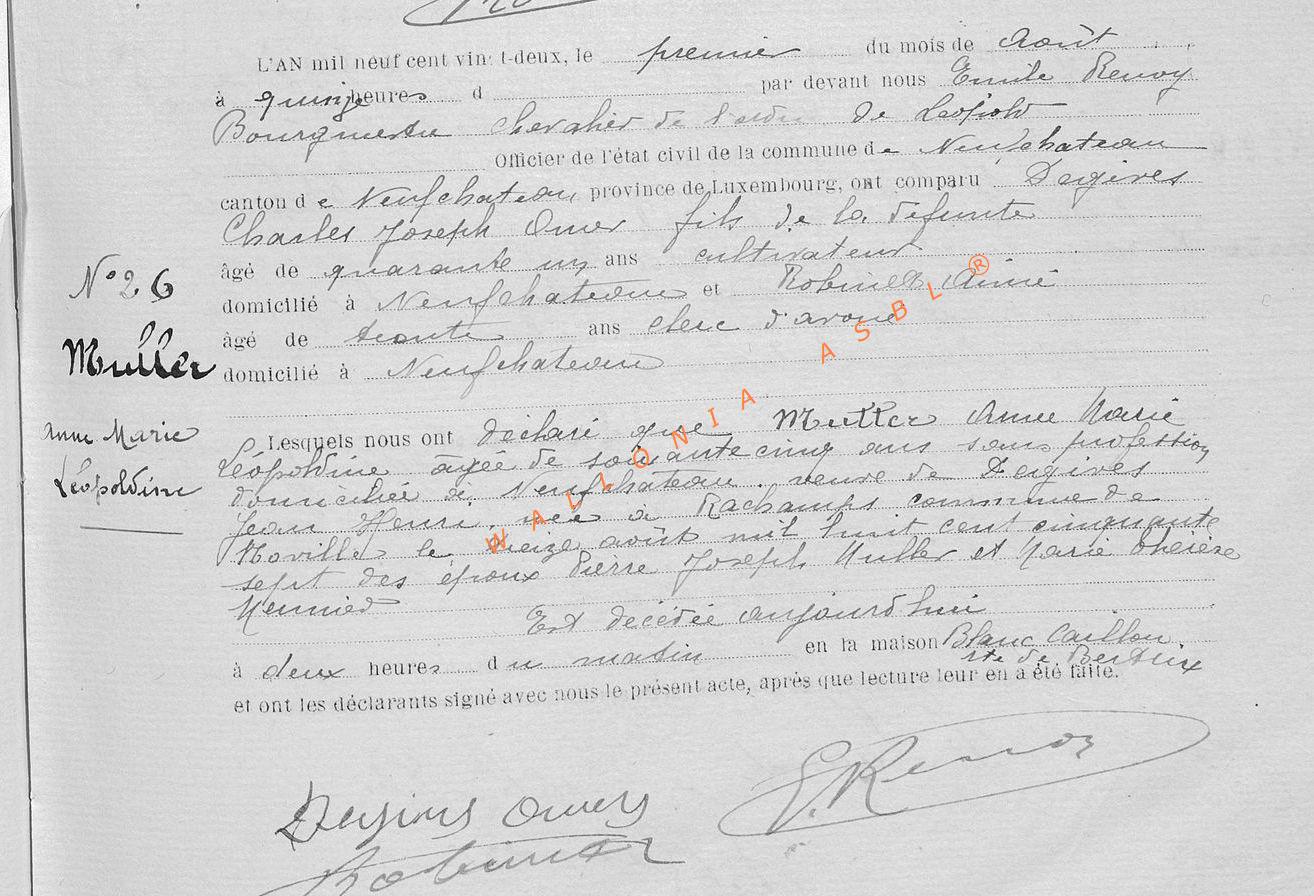 L'AN mil neuf cent vingt-deux, le premier du mois de Août
à quinze heures d par devant nous Emile Renoy
Bourgmestre Chevalier de l'ordre de Léopold
Officier de l'état civil de la commune de Neufchateau
canton de Neufchateau province de Luxembourg, ont comparu Degives
Charles Joseph Omer fils de la défunte
âgé de quarante un ans cultivateur
domicilié à Neufchateau et Robinet Aimé
âgé de trente ans clerc d'avoué
domicilié à Neufchateau
N° 26
Muller
Anne Marie
Léopoldine
Lesquels nous ont déclaré que Muller Anne Marie
Léopoldine âgée de soixante cinq ans sans profession
domiciliée à Neufchateau, veuve de Degives
Jean Henri, née à Rachamps commune de
Noville le treize août mil huit cent cinquante
sept des époux Pierre Joseph Muller et Marie Thérèse
Meunier
Est décédée aujourd'hui
à deux heures du matin en la maison Blanc Caillou
rte de Bertrix
et ont les déclarants signé avec nous le présent acte, après que lecture leur en a été faite.
E. Renoy
Degives Omer
Robinet
WALLONIA ASBL ®